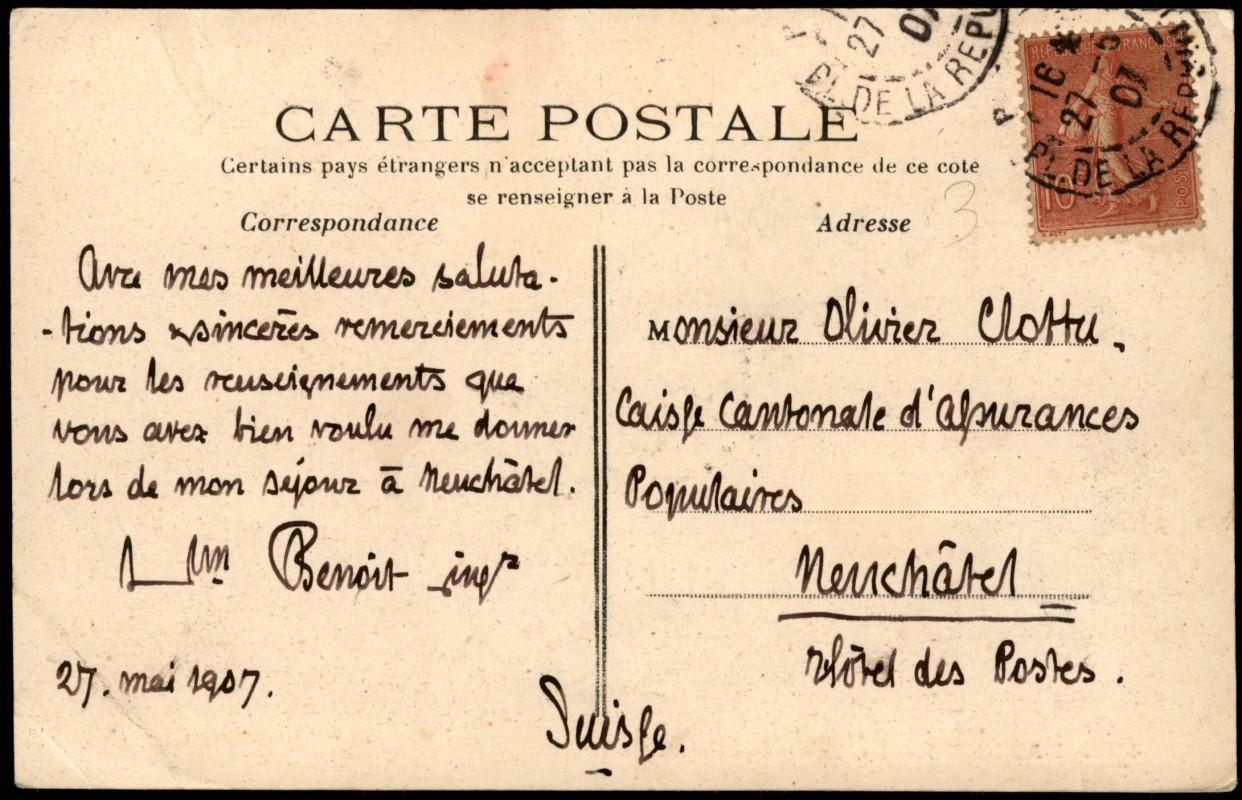 CARTE POSTALE
Certains pays étrangers n'acceptant pas la correspondance de ce coté
se renseigner à la Poste
Correspondance
Adresse
3
Avec mes meilleures saluta-
-tions & sincères remerciements
pour les renseignements que
vous avez bien voulu me donner
lors de mon séjour à Neuchâtel.
Benoit ingr
27. mai 1907.
Monsieur Olivier Clottu,
Caisse Cantonale d'Assurances
Populaires
Neuchâtel
Hôtel des Postes.
Suisse.
27
07
PL. DE LA REPU
16 *
27 -5
07
PL. DE LA REPU
10
POSTES